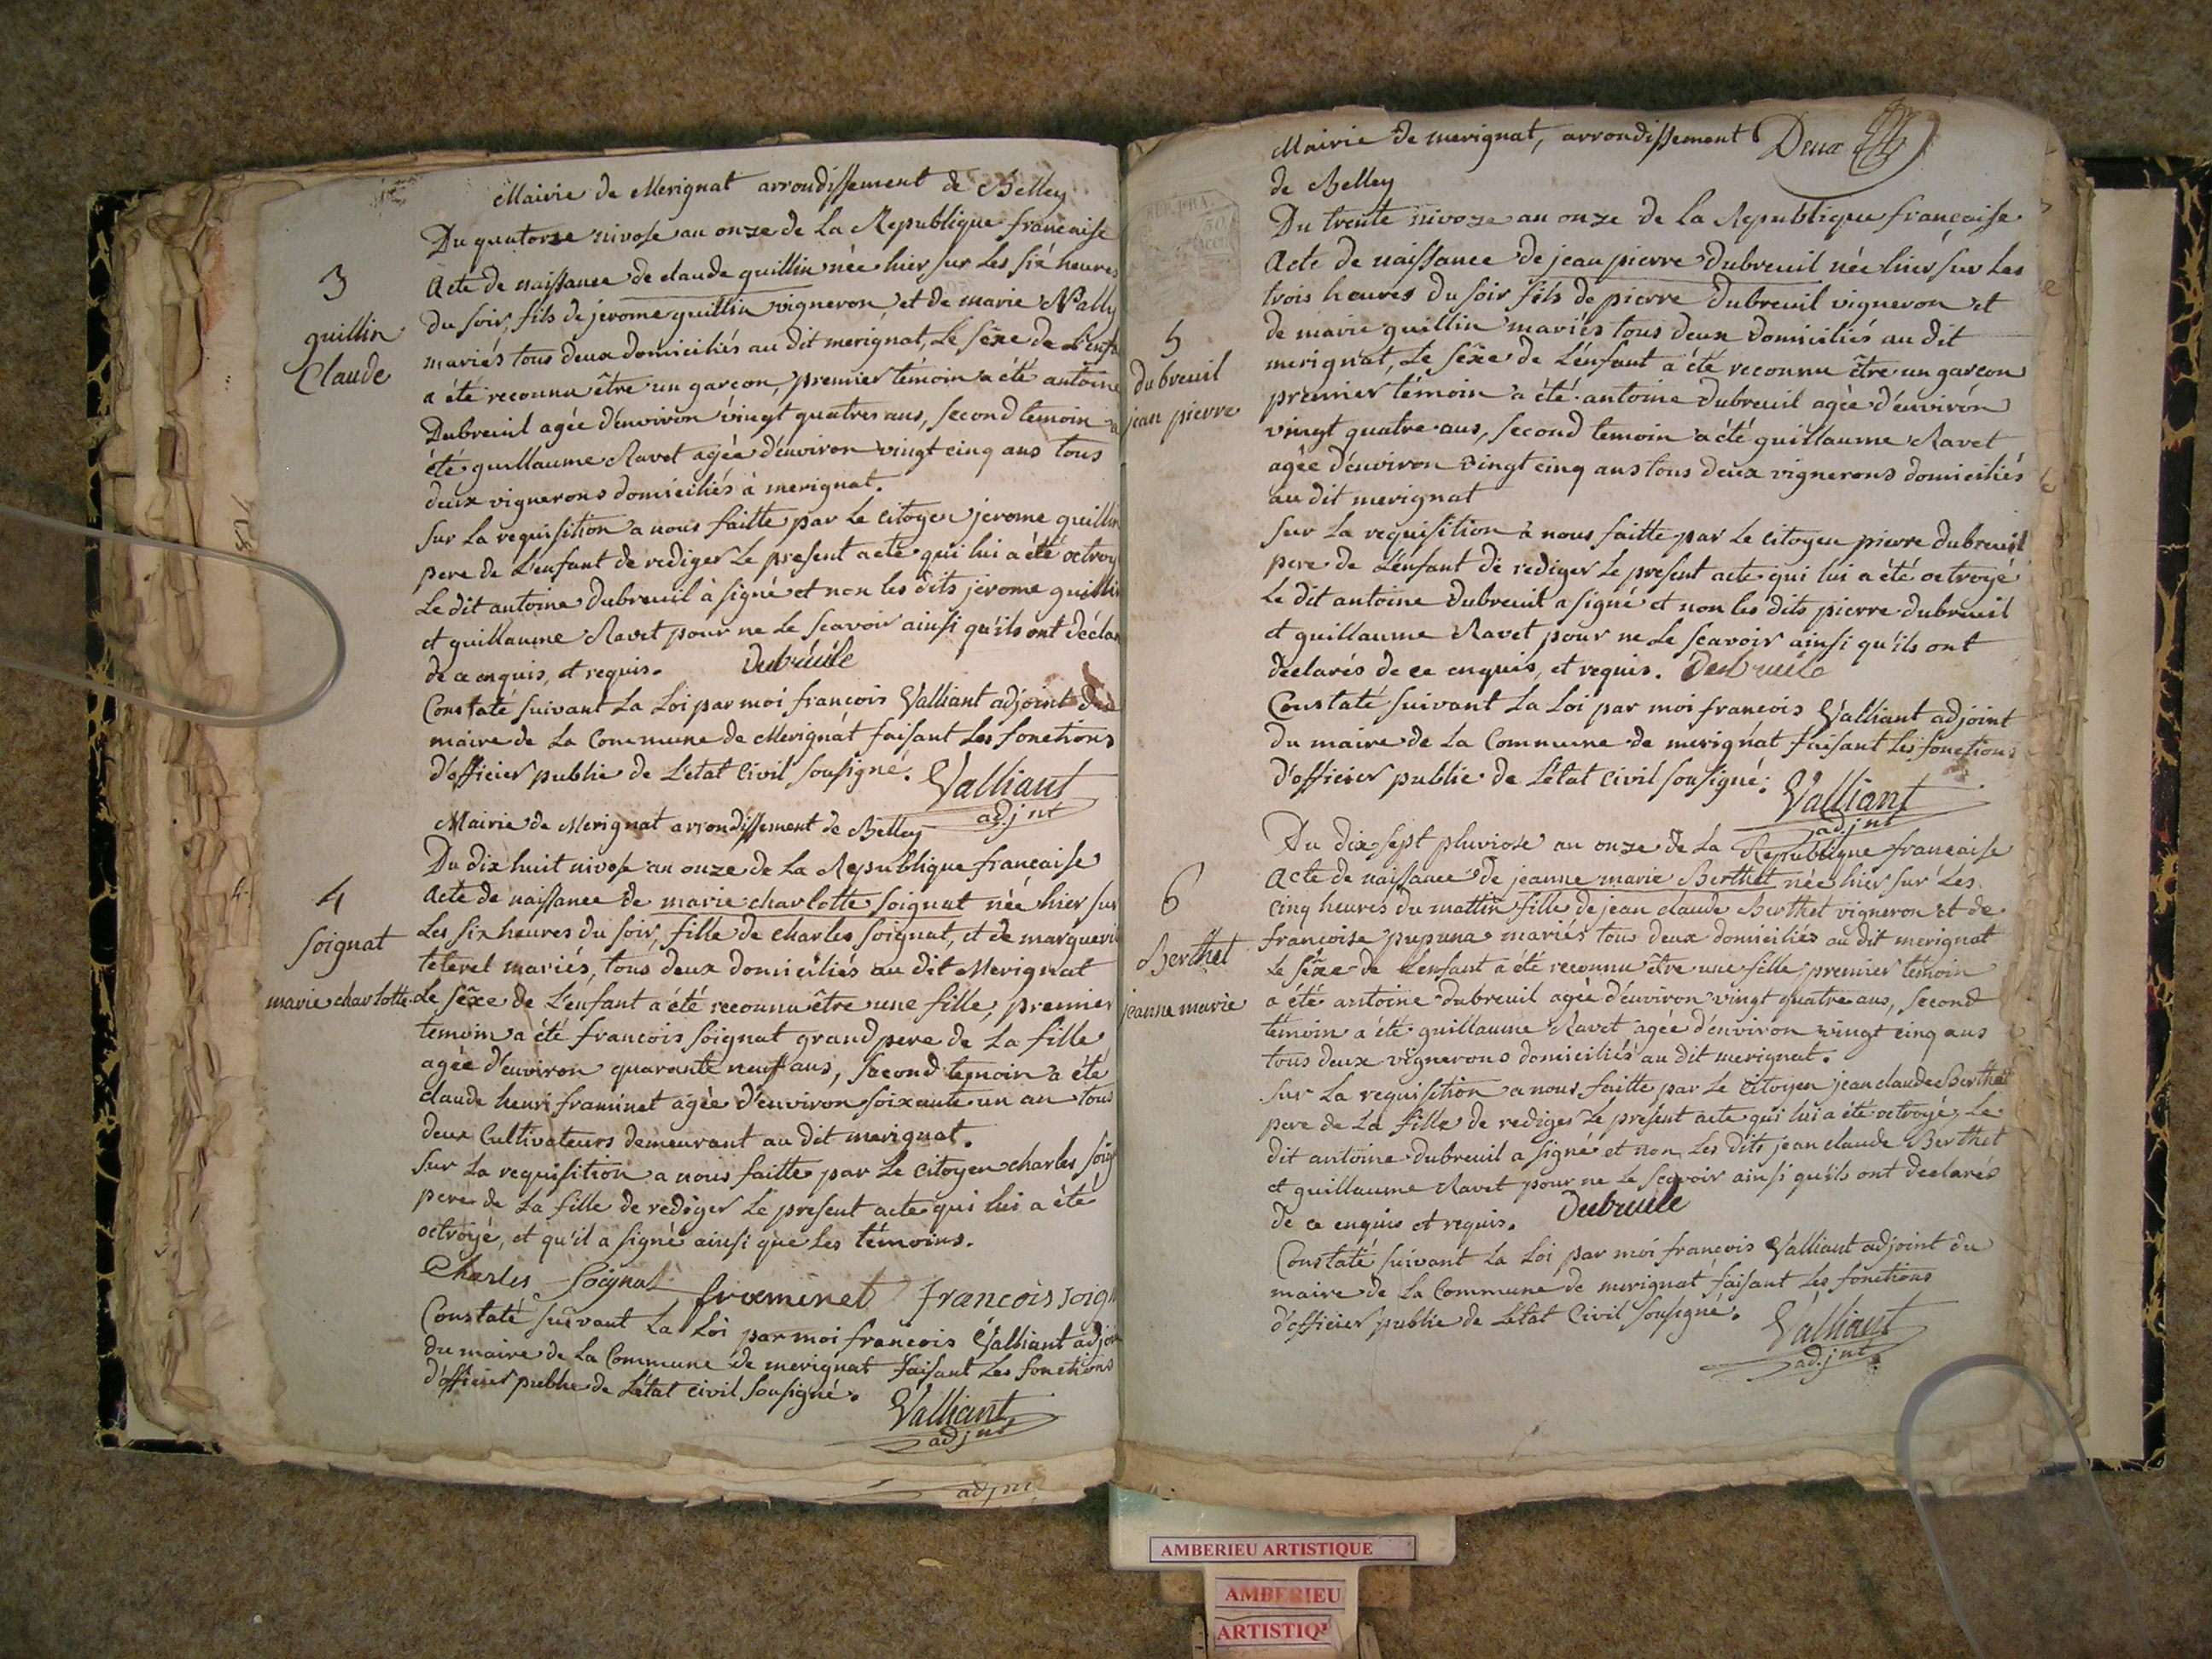 Mairie de Merignat arrondissement de Belley
Du quatorze nivose an onze de la Republique francaise
3
guillin
Claude
Acte de naissance de claude guillin née hier sur les six heures
du soir, fils de jerome guillin vigneron et de marie
mariés tous deux domiciliés au dit merignat, Le sèxe de L'enfa
a été reconnu être un garcon, premier témoin a été antoine
Dubreuil agée d'environ vingt quatres ans, second temoin a
été guillaume Ravet agée d'environ vingt cinq ans tous
deux vignerons domiciliés à merignat.
Sur la requisition a nous faitte par Le citoyen jerome guillin
pere de L'enfant de rediger Le present acte qui lui a été octroy
Le dit antoine Dubreuil à signé et non les dits jerome guillin
et guillaume Ravet pour ne Le scavoir ainsi qu'ils ont déclar
de ce enquis, et requis. Dubreuile
Constaté suivant La Loi par moi francois Valliant adjoint du
maire de La Commune de Merignat faisant Les fonctions
d'officier public de L'etat Civil sousigné. Valliant
adjnt
Mairie de Merignat arrondissement de Belley
Du dix huit nivose an onze de La Republique francaise
4
soignat
marie charlotte
Acte de naissance de marie charlotte soignat née hier sur
Les six heures du soir, fille de charles soignat, et de margueri
mariés, tous deux domiciliés au dit Merignat
Le sèxe de L'enfant a été reconnu être une fille, premier
temoin a été francois soignat grand pere de La fille
agée d'environ quarante neuf ans, second temoin a été
claude henri framinet agée d'environ soixante un an tous
deux Cultivateurs demeurant au dit merignat.
Sur La requisition a nous faitte par Le citoyen charles soig
pere de La fille de rediger Le present acte qui lui a été
octroyé, et qu'il a signé ainsi que Les témoins.
Charles Soignat framinet francois soign
Constaté suivant La Loi par moi francois Valliant adjoi
du maire de La Commune de merignat faisant Les fonctions
d'officier public de L'état civil sousigné. Valliant
adjnt
adjnt
Mairie de merignat, arrondissement Deux
de Belley
Du trente nivoze an onze de La Republique francaise
5
dubreuil
jean pierre
Acte de naissance de jean pierre Dubreuil née hier sur Les
trois heures du soir fils de pierre Dubreuil vigneron et
de marie guillin mariés tous deux domiciliés au dit
merignat, Le sèxe de L'enfant a été reconnu être un garcon
premier témoin a été antoine Dubreuil agée d'environ
vingt quatre ans, second temoin a été guillaume Ravet
agée d'environ vingt cinq ans tous deux vignerons domiciliés
au dit merignat
Sur La requisition à nous faitte par Le citoyen pierre dubreuil
pere de L'enfant de rediger Le present acte qui lui a été octroyé
Le dit antoine Dubreuil a signé et non les dits pierre dubreuil
et guillaume Ravet pour ne Le scavoir ainsi qu'ils ont
declarés de ce enquis, et requis. Dubreuile
Constaté suivant La Loi par moi francois Valliant adjoint
du maire de La Commune de merignat faisant Les fonctions
d'officier public de L'état civil sousigné. Valliant
adjnt
Du dix sept pluviose an onze de La Republique francaise
6
Berthet
jeanne marie
Acte de naissance de jeanne marie Berthet née hier sur Les
cinq heures du mattin fille de jean claude Berthet vigneron et de
francoise pupuna mariés tous deux domiciliés au dit merignat
Le sèxe de L'enfant a été reconnu être une fille, premier témoin
a été antoine dubreuil agée d'environ vingt quatre ans, second
témoin a été guillaume Ravet agée d'environ vingt cinq ans
tous deux vignerons domiciliés au dit merignat.
Sur La requisition a nous faitte par Le Citoyen jean claude Berthet
pere de La fille de rediger Le present acte qui lui a été octroyé, Le
dit antoine dubreuil a signé et non Les dits jean claude Berthet
et guillaume Ravet pour ne Le scavoir ainsi qu'ils ont declarés
de ce enquis et requis. Dubreuile
Constaté suivant La Loi par moi francois Valliant adjoint du
maire de La Commune de merignat faisant Les fonctions
d'officier public de L'état Civil sousigné. Valliant
adjnt
AMBERIEU ARTISTIQUE
AMBERIEU
ARTISTIQ